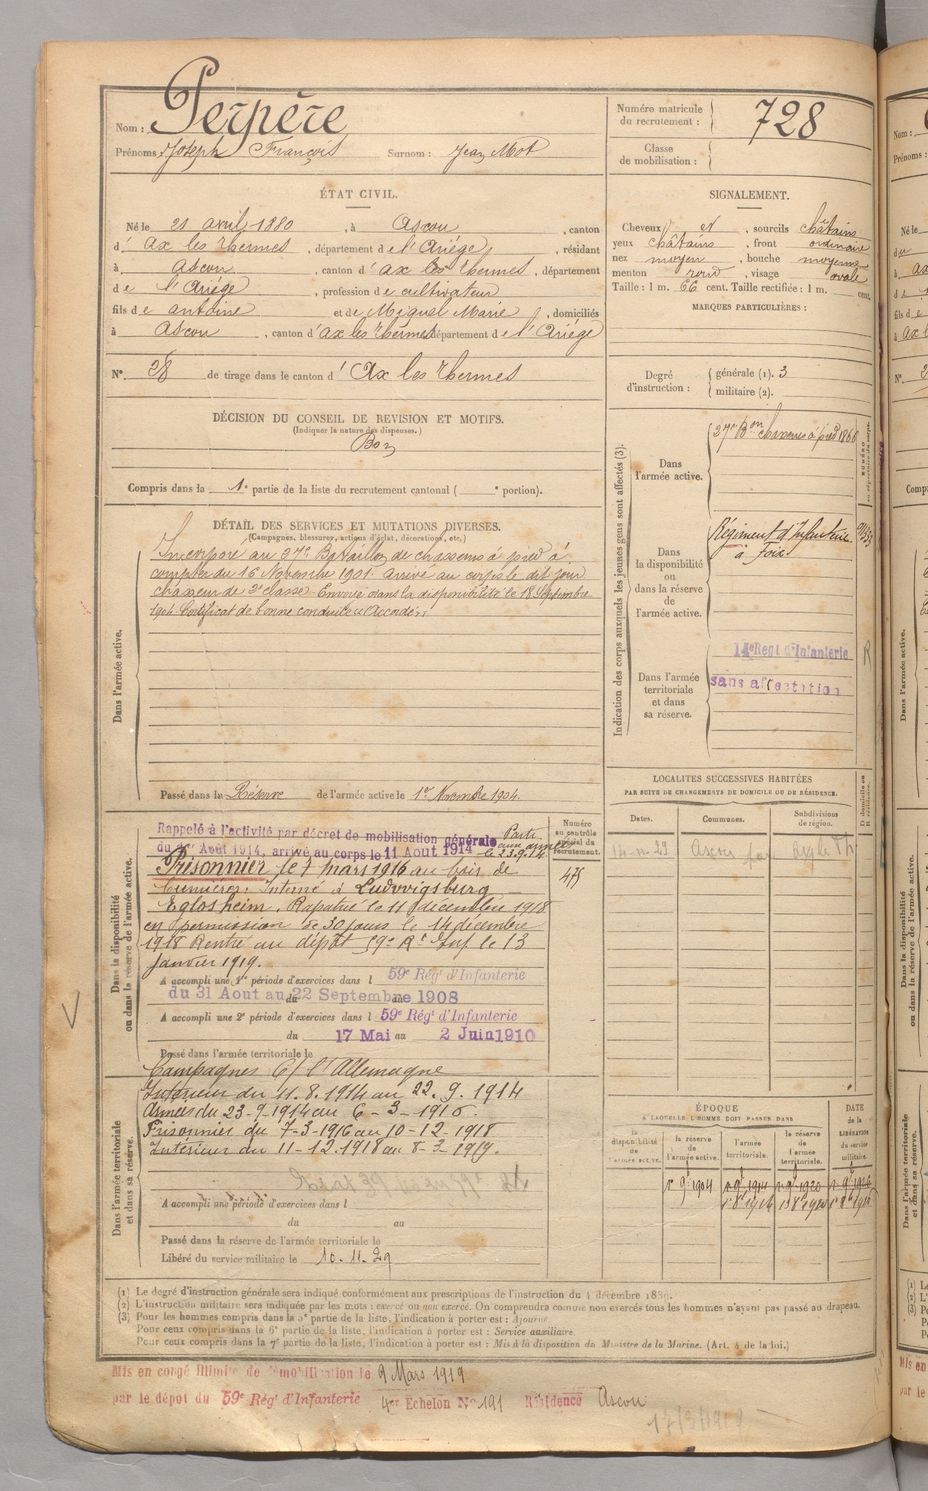 Nom : Perpère
Prénoms : Joseph François Surnom : Jean Mot
Numéro matricule du recrutement : 728
Classe de mobilisation :
ÉTAT CIVIL.
Né le 21 avril 1880, à Ascou, canton
d' Ax les Thermes, département de l'Ariége, résidant
à Ascou, canton d' Ax les Thermes, département
de l'Ariége, profession de cultivateur
fils de Antoine et de Miguel Marie, domiciliés
à Ascou, canton d'Ax les Thermes département de l'Ariége
N° 38 de tirage dans le canton d' Ax les Thermes
SIGNALEMENT.
Cheveux et, sourcils châtains
yeux châtains, front ordinaire
nez moyen, bouche moyenne
menton rond, visage ovale
Taille : 1 m. 66 cent. Taille rectifiée : 1 m. cent.
MARQUES PARTICULIÈRES :
Degré d'instruction : générale (1). 3
militaire (2).
DÉCISION DU CONSEIL DE REVISION ET MOTIFS.
(Indiquer la nature des dispenses.)
Bon
Compris dans la 1e partie de la liste du recrutement cantonal ( e portion).
DÉTAIL DES SERVICES ET MUTATIONS DIVERSES.
(Campagnes, blessures, actions d'éclat, décorations, etc.)
Dans l'armée active.
Incorporé au 27e Bataillon de chasseurs à pied à
compter du 16 Novembre 1901 arrivé au corps le dit jour
chasseur de 2e classe. Envoyé dans la disponibilité le 18 Septembre
1904 Certificat de bonne conduite "Accordé"
Passé dans la Réserve de l'armée active le 1er Novembre 1904.
Indication des corps auxquels les jeunes gens sont affectés (3).
Dans l'armée active.
27e Bon chasseurs à pied
Dans la disponibilité ou dans la réserve de l'armée active.
Régiment d'Infanterie
à Foix
Dans l'armée territoriale et dans sa réserve.
14e Regt d'Infanterie
sans affectation
R
LOCALITÉS SUCCESSIVES HABITÉES
PAR SUITE DE CHANGEMENTS DE DOMICILE OU DE RÉSIDENCE.
Dates. Communes. Subdivisions de région.
Ascou par Ax les Th
Dans la disponibilité ou dans la réserve de l'armée active.
Numéro au contrôle spécial du recrutement.
475
Rappelé à l'activité par décret de mobilisation générale Parti
du 1er Août 1914, arrivé au corps le 11 Août 1914 aux armées le 23.9.14
Prisonnier le 7 mars 1916 au bois de
Cumières. Interné à Ludwigsburg
Eglosheim. Rapatrié le 11 décembre 1918
en permission de 30 jours le 14 décembre
1918 Rentré au dépôt 59e Rt Inf le 13
Janvier 1919.
A accompli une 1re période d'exercices dans l 59e Rég' d'Infanterie
du 31 Aout au 22 Septembre 1908
A accompli une 2e période d'exercices dans l 59e Rég' d'Infanterie
du 17 Mai au 2 Juin 1910
Passé dans l'armée territoriale le
Campagnes C/ l'Allemagne
Dans l'armée territoriale et dans sa réserve.
Intérieur du 11.8.1914 au 22.9.1914
Armées du 23-9-1914 au 6-3-1916.
Prisonnier du 7-3-1916 au 10-12-1918
Intérieur du 11-12-1918 au 8-3-1919.
A accompli une période d'exercices dans l
du au
Passé dans la réserve de l'armée territoriale le
Libéré du service militaire le 10.11.29
ÉPOQUE
A LAQUELLE L'HOMME DOIT PASSER DANS
la disponibilité de l'armée active. la réserve de l'armée active. l'armée territoriale. la réserve de l'armée territoriale.
DATE de la LIBÉRATION du service militaire.
1er 9b 1904 1er 9b 1914 1er 9b 1920 1er 9b 1926
(1) Le degré d'instruction générale sera indiqué conformément aux prescriptions de l'instruction du 4 décembre 1889.
(2) L'instruction militaire sera indiquée par les mots : exercé ou non exercé. On comprendra comme non exercés tous les hommes n'ayant pas passé au drapeau.
(3) Pour les hommes compris dans la 5e partie de la liste, l'indication à porter est : Ajourné
Pour ceux compris dans la 6e partie de la liste, l'indication à porter est : Service auxiliaire.
Pour ceux compris dans la 7e partie de la liste, l'indication à porter est : Mis à la disposition du Ministre de la Marine. (Art. 4 de la loi.)
Mis en congé illimité de démobilisation le 9 Mars 1919
par le dépôt du 59e Rég' d'Infanterie 4e Echelon N° 191 Résidence Ascou